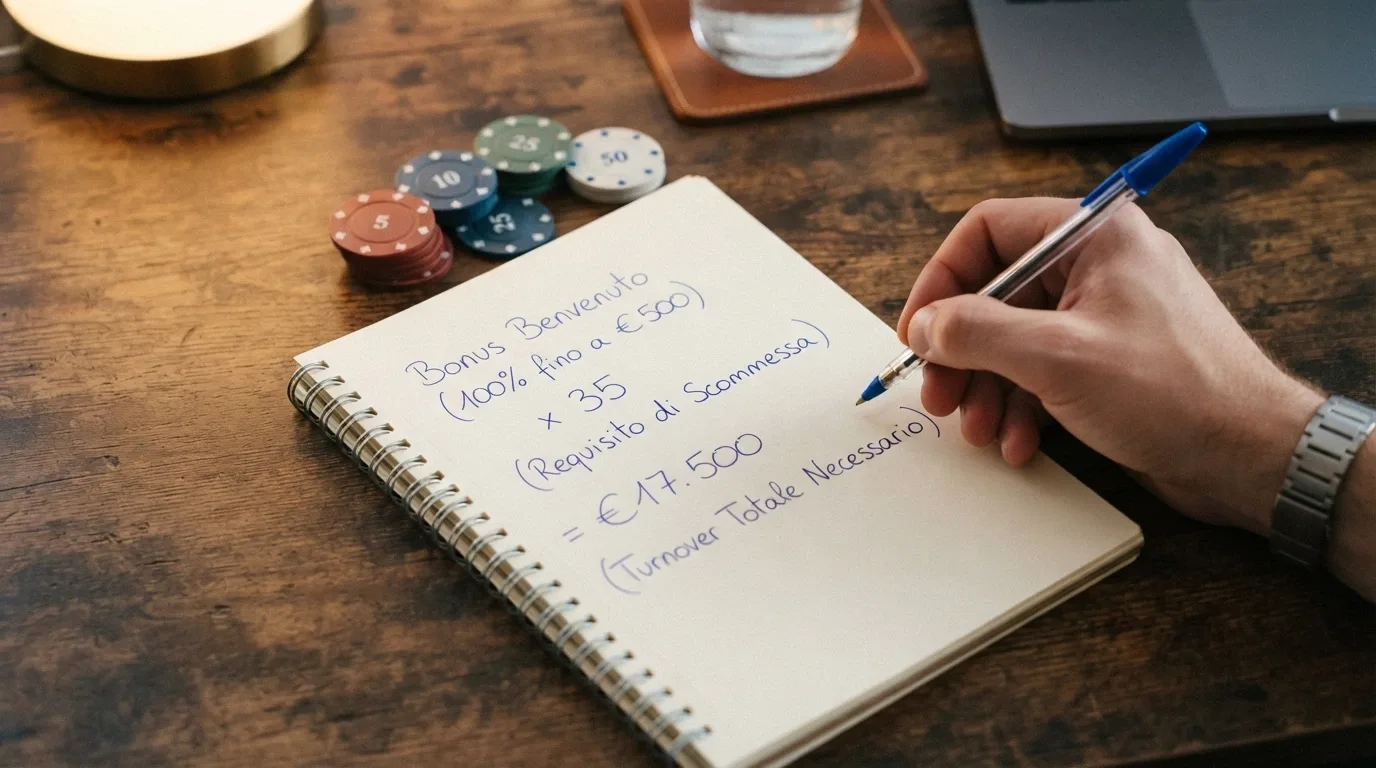 5
10
25
25
50
Bonus Benvenuto
(100% fino a €500)
× 35
(Requisito di Scommessa)
= €17.500
(Turnover Totale Necessario)